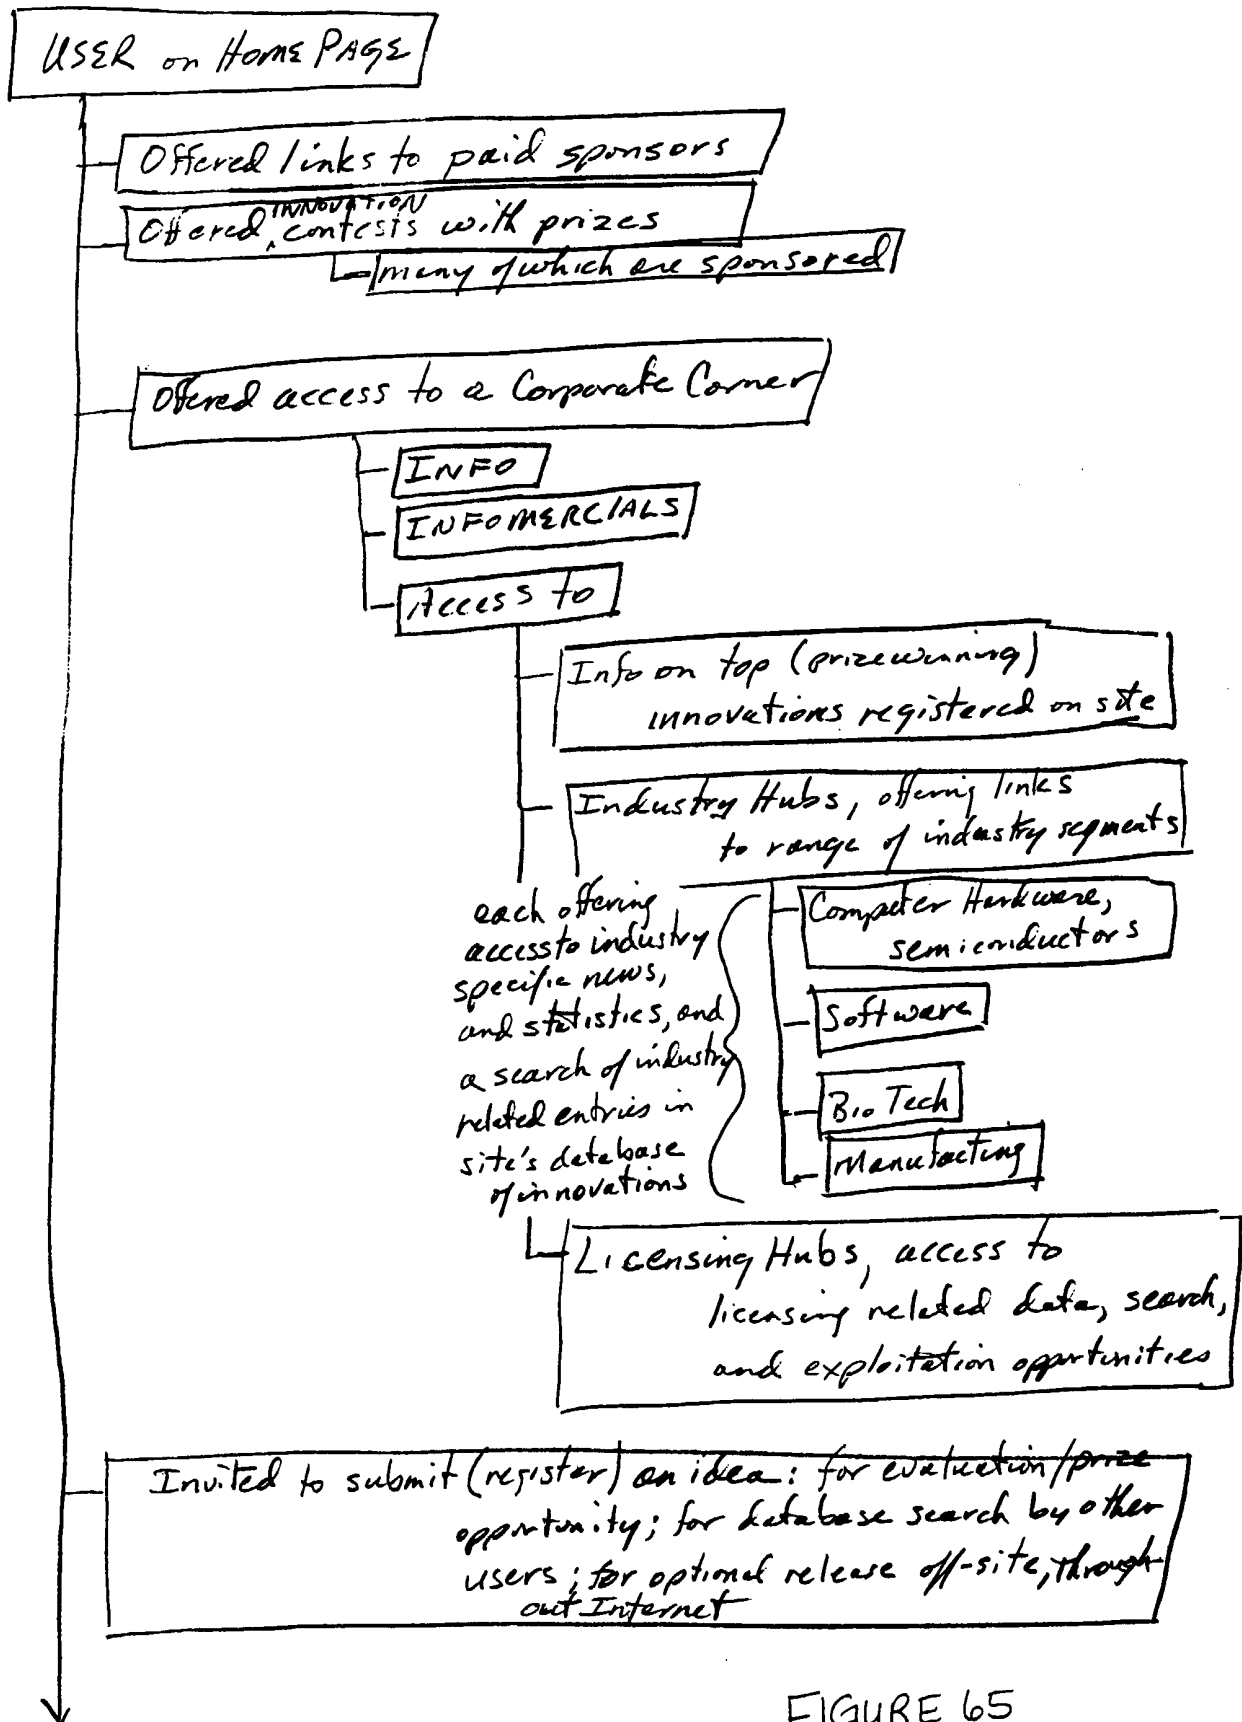 USER on HOME PAGE
Offered links to paid sponsors
Offered INNOVATION contests with prizes
many of which are sponsored
Offered access to a Corporate Corner
INFO
INFOMERCIALS
Access to
Info on top (prizewinning)
innovations registered on site
Industry Hubs, offering links
to range of industry segments
each offering
access to industry
specific news,
and statistics, and
a search of industry
related entries in
site's database
of innovations
Computer Hardware,
semiconductors
Software
Bio Tech
Manufacting
Licensing Hubs, access to
licensing related data, search,
and exploitation opportunities
Invited to submit (register) an idea: for evaluation/prize
opportunity; for database search by other
users; for optional release off-site, through-
out Internet
FIGURE 65